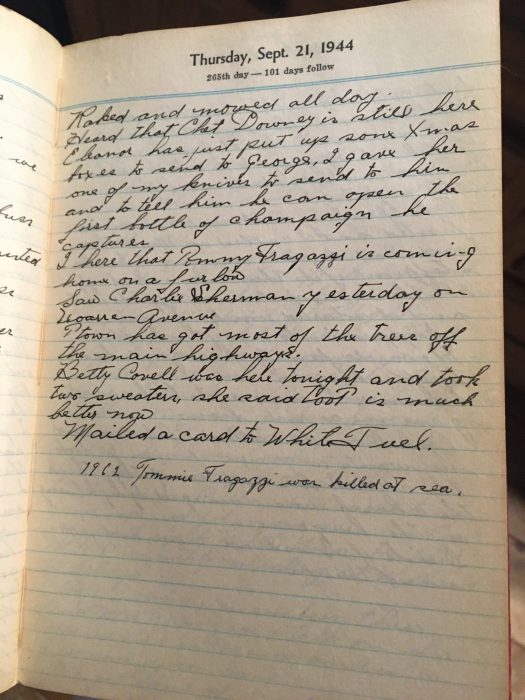 we
Thursday, Sept. 21, 1944
265th day — 101 days follow
Raked and mowed all day.
Heard that Chet Downey is still here
Eleanor has just put up some Xmas
boxes to send to George, I gave her
one of my knives to send to him
and to tell him he can open the
first bottle of champaign he
captures
I here that Tommy Fragazzi is coming
home on a furlow
Saw Charlie Sherman yesterday on
Warren Avenue
Ptown has got most of the trees off
the main highways.
Betty Covell was here tonight and took
two sweaters, she said Toot is much
better now
Mailed a card to White Fuel.
1962 Tommie Fragazzi was killed at sea.